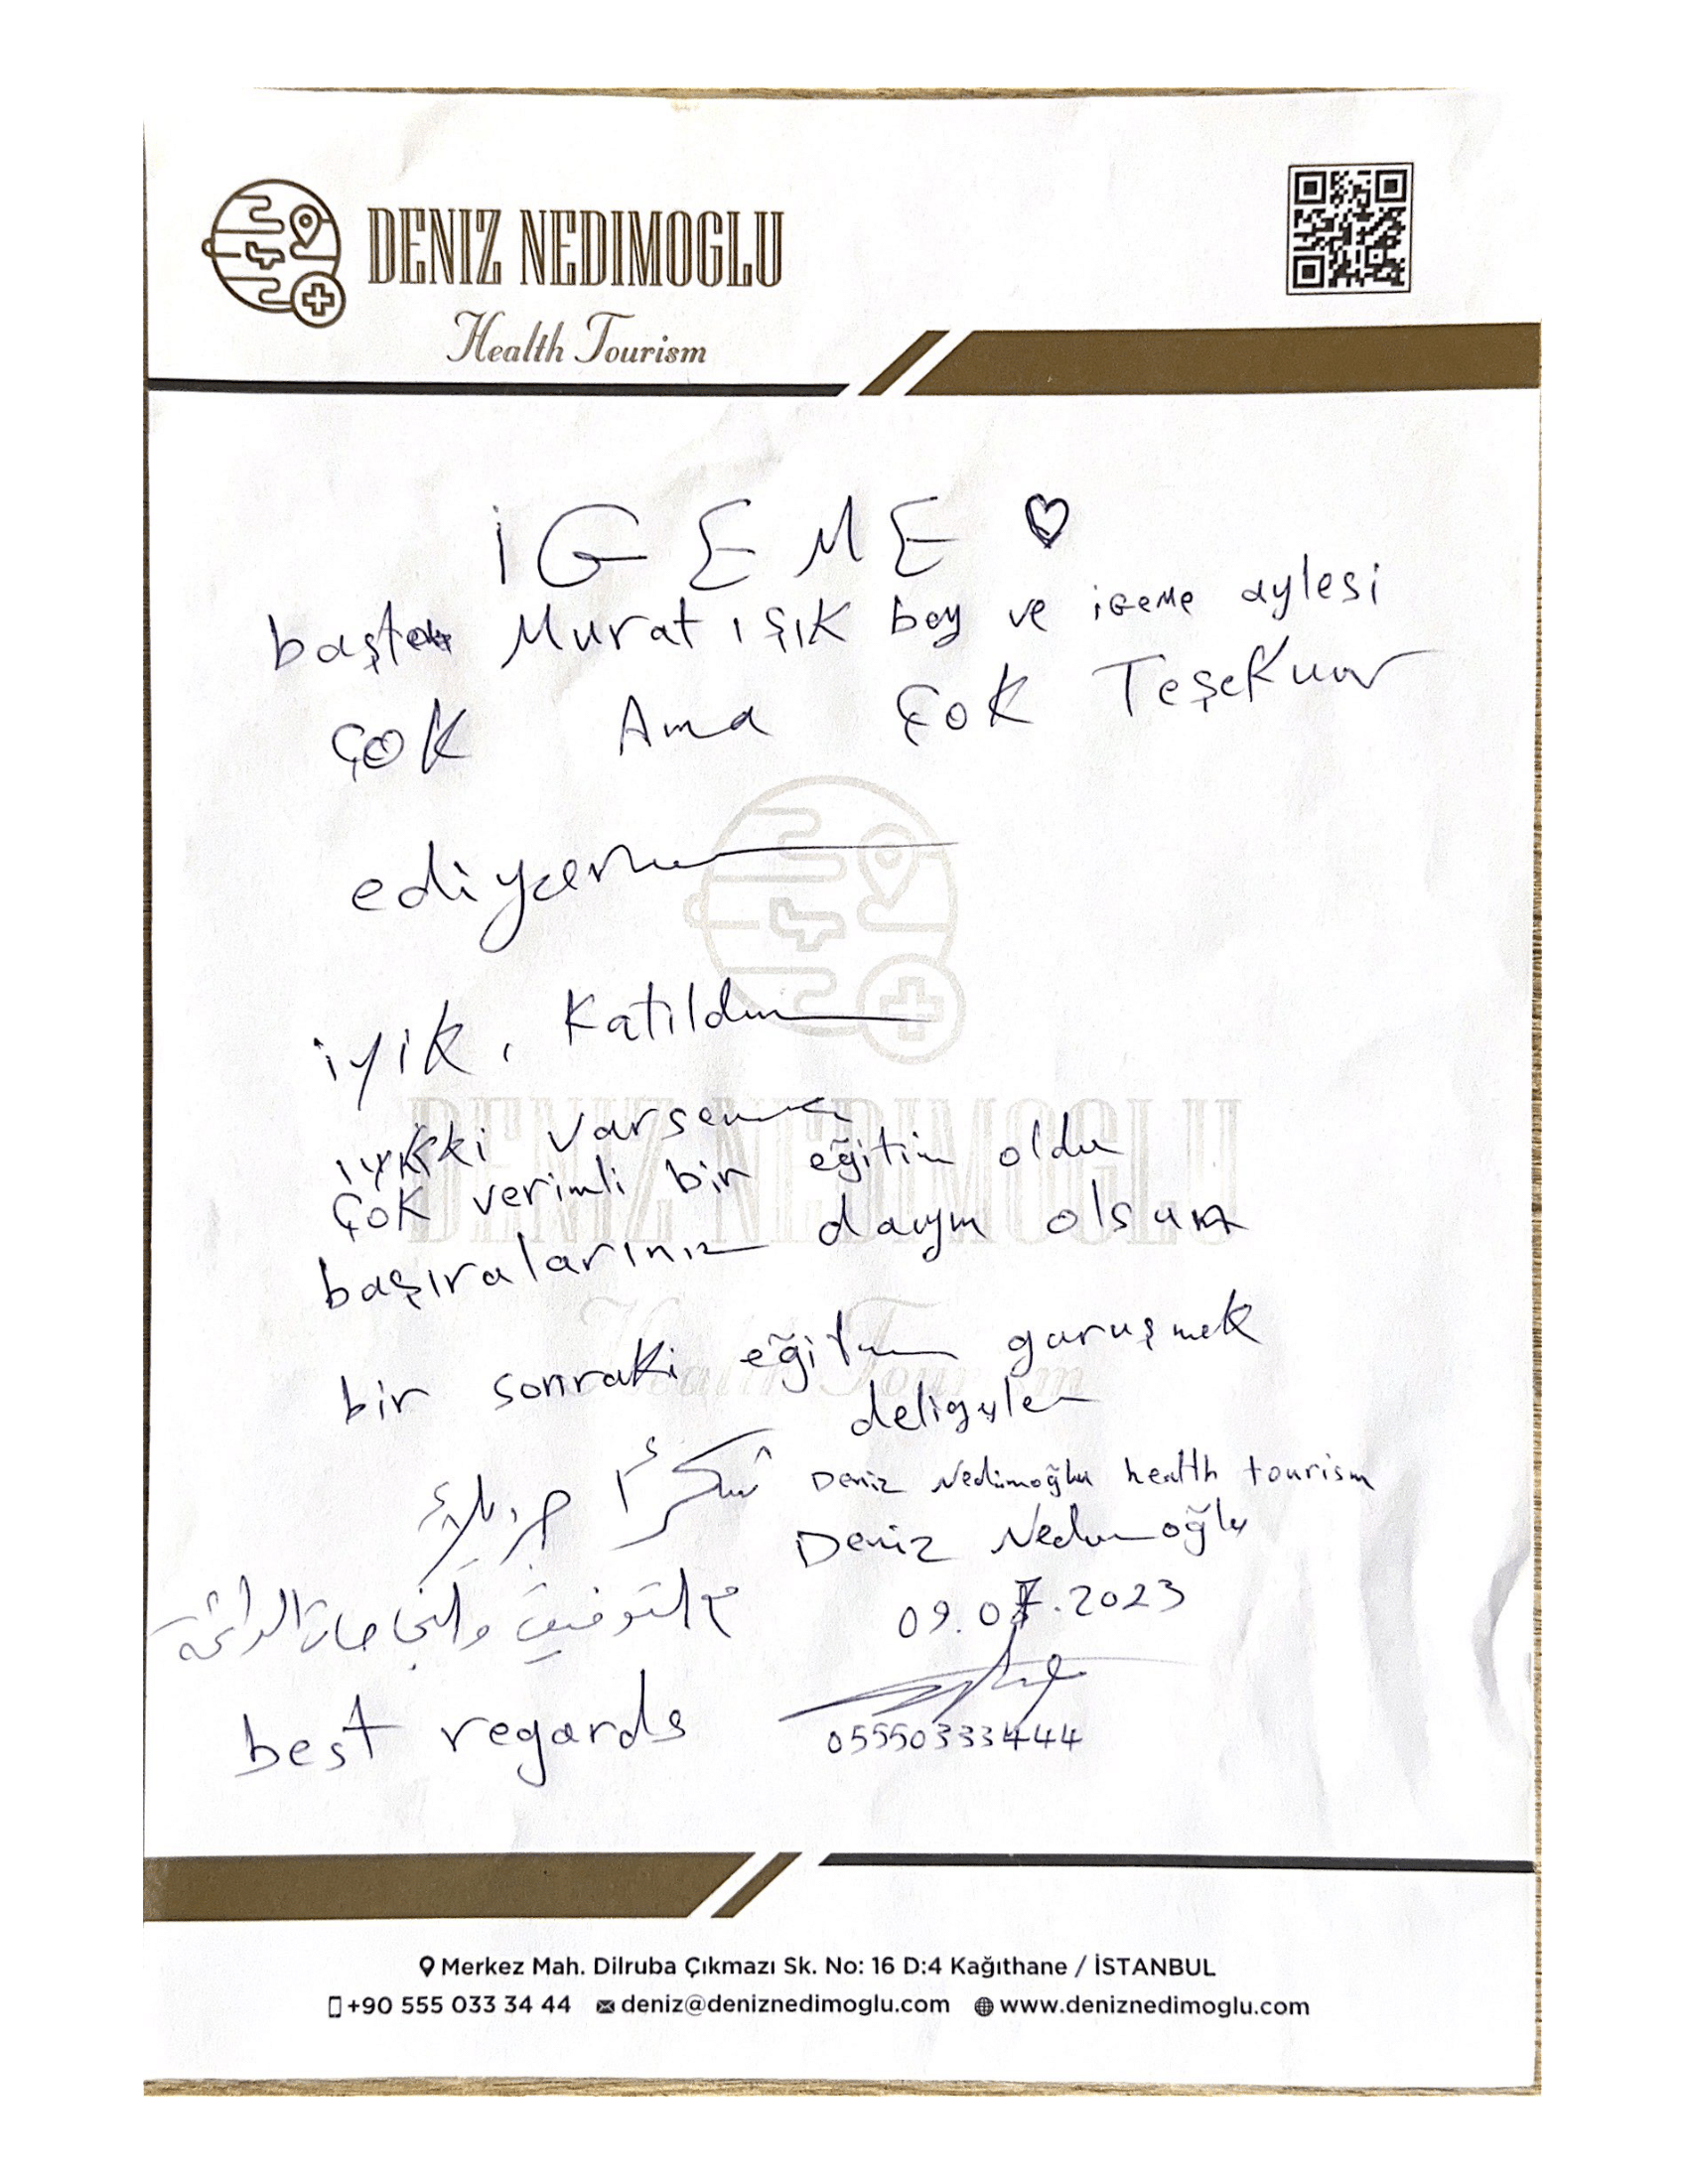 DENIZ NEDIMOGLU
Health Tourism
İGEME
baştan Murat ışık bey ve iGeme aylesi
ÇOK Ama ÇOK TeşeKuur
ediyorum
iyiK, Katıldım
iyiKki varsınız
ÇoK verimli bir eğitim oldu
başıralarınız daym olsun
bir sonraki eğitim goruşmek
deligyle
شكرأ جزيلأ
Deniz Nedimoğlu health tourism
Deniz Nedimoğlu
مع التوفيق والنجاحات الدائمة
09.07.2023
best regards
05550333444
Merkez Mah. Dilruba Çıkmazı Sk. No: 16 D:4 Kağıthane / İSTANBUL
+90 555 033 34 44 deniz@deniznedimoglu.com www.deniznedimoglu.com